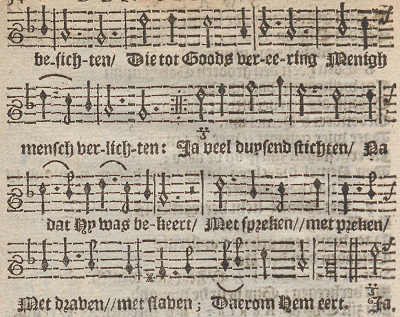 be-sich-ten/ Die tot Goods ver-ee-ring Menigh
mensch ver-lich-ten: Ja veel duysend stichten/ Na
dat Hy was be-keert/ Met spreken//met preken/
Met draven//met slaven; Daerom Hem eert. Ja.